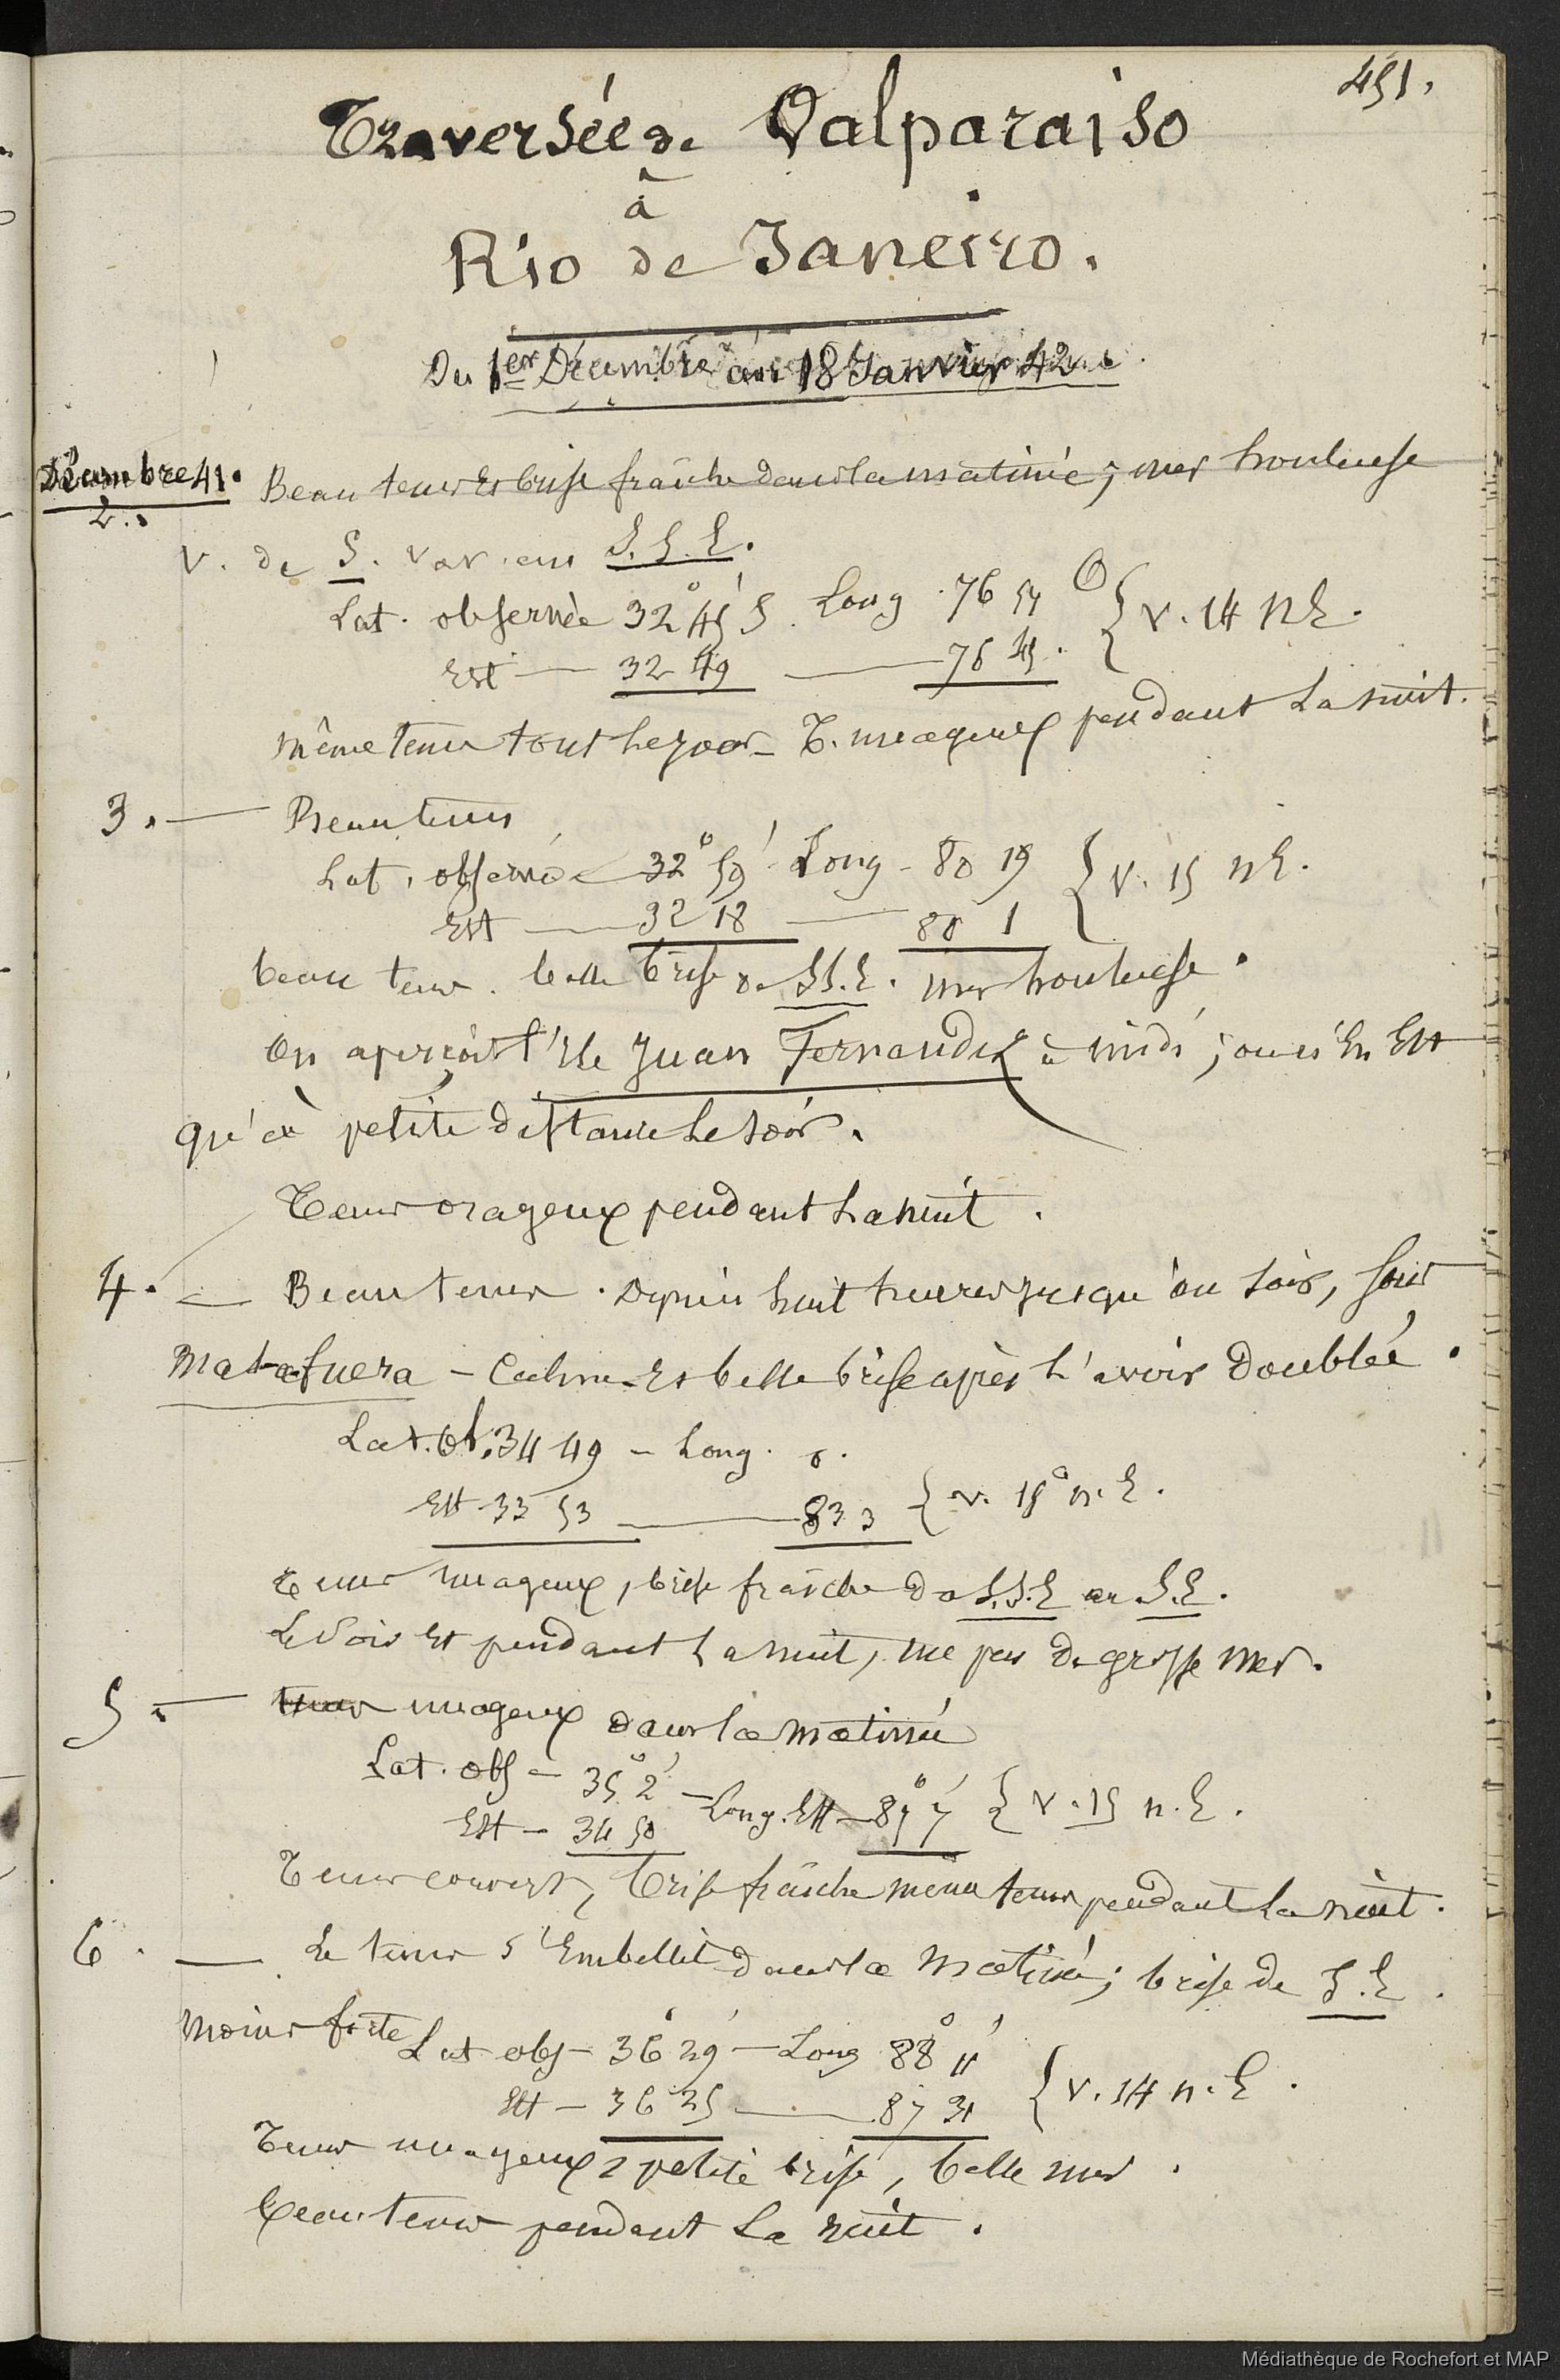 451.
Traversée de Valparaiso
à
Rio de Janeiro.
Du 1er Décembre au 18 Janvier 42
Décembre 41. Beau tems et brise fraîche dans la matinée ; mer houleuse
2.
V. de S. var. au S.S.E.
Lat. observée 32° 45' S. Long. 76 54 { V. 14 NE.
Est — 32 49 — 76 45.
même tems tout le jour - T. nuageux pendant la nuit.
3. — Beau tems
Lat. observée 32° 59' Long - 80 19 { V. 15 NE.
Est — 32 18 — 80 1
beau tems. belle brise de SS.E. mer houleuse.
On aperçoit l'Ile Juan Fernandez à midi ; on n'en Est
qu'à petite distance le soir.
Tems orageux pendant la nuit.
4. — Beau tems. Depuis huit heures jusqu'au soir, sous
Mas-a-fuera - Calme et belle brise après l'avoir doublée.
Lat. ob. 34 49 - Long. 0.
Est 33 53 — 83 3 { v. 15° n. E.
Tems nuageux, brise fraîche de S.S.E au S.E.
Le Soir et pendant la nuit, un peu de grosse mer.
5. — tems nuageux dans la matinée
Lat. obs - 35° 2' - Long. Est - 87° 7' { V. 15 n. E.
Est - 34 50
Tems couvert, brise fraîche même tems pendant la nuit.
6. — Le tems s'Embellit dans la matinée ; brise de S.E.
moins forte Lat obs - 36° 29' - Long 88° 11' { V. 14 n. E.
Est - 36 25 — 87 31
Tems nuageux, petite brise, belle mer.
Beau tems pendant la nuit.
Médiathèque de Rochefort et MAP